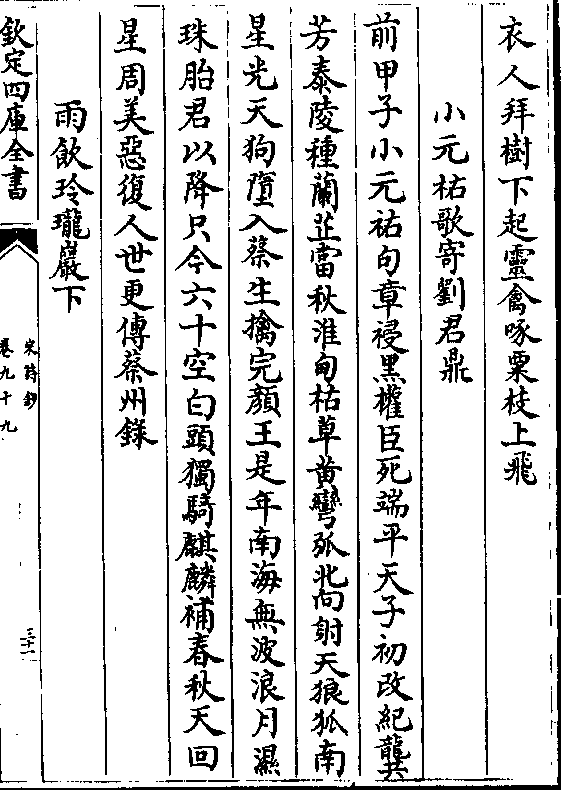 衣人拜樹下起靈禽啄粟枝上飛
小元祐歌寄劉君鼎
前甲子小元祐句章祲黑權臣死端平天子初改紀龔
芳泰陵種蘭芷當秋淮甸枯草黄彎弧北向射天狼狐南
星光天狗墮入蔡生擒完顏王是年南海無波浪月濕
珠胎君以降只今六十空白頭獨騎麒麟補春秋天回
星周美惡復人世更傳蔡州錄
雨飲玲瓏巖下
欽定四庫全書
宋詩鈔
卷九十九
三十二